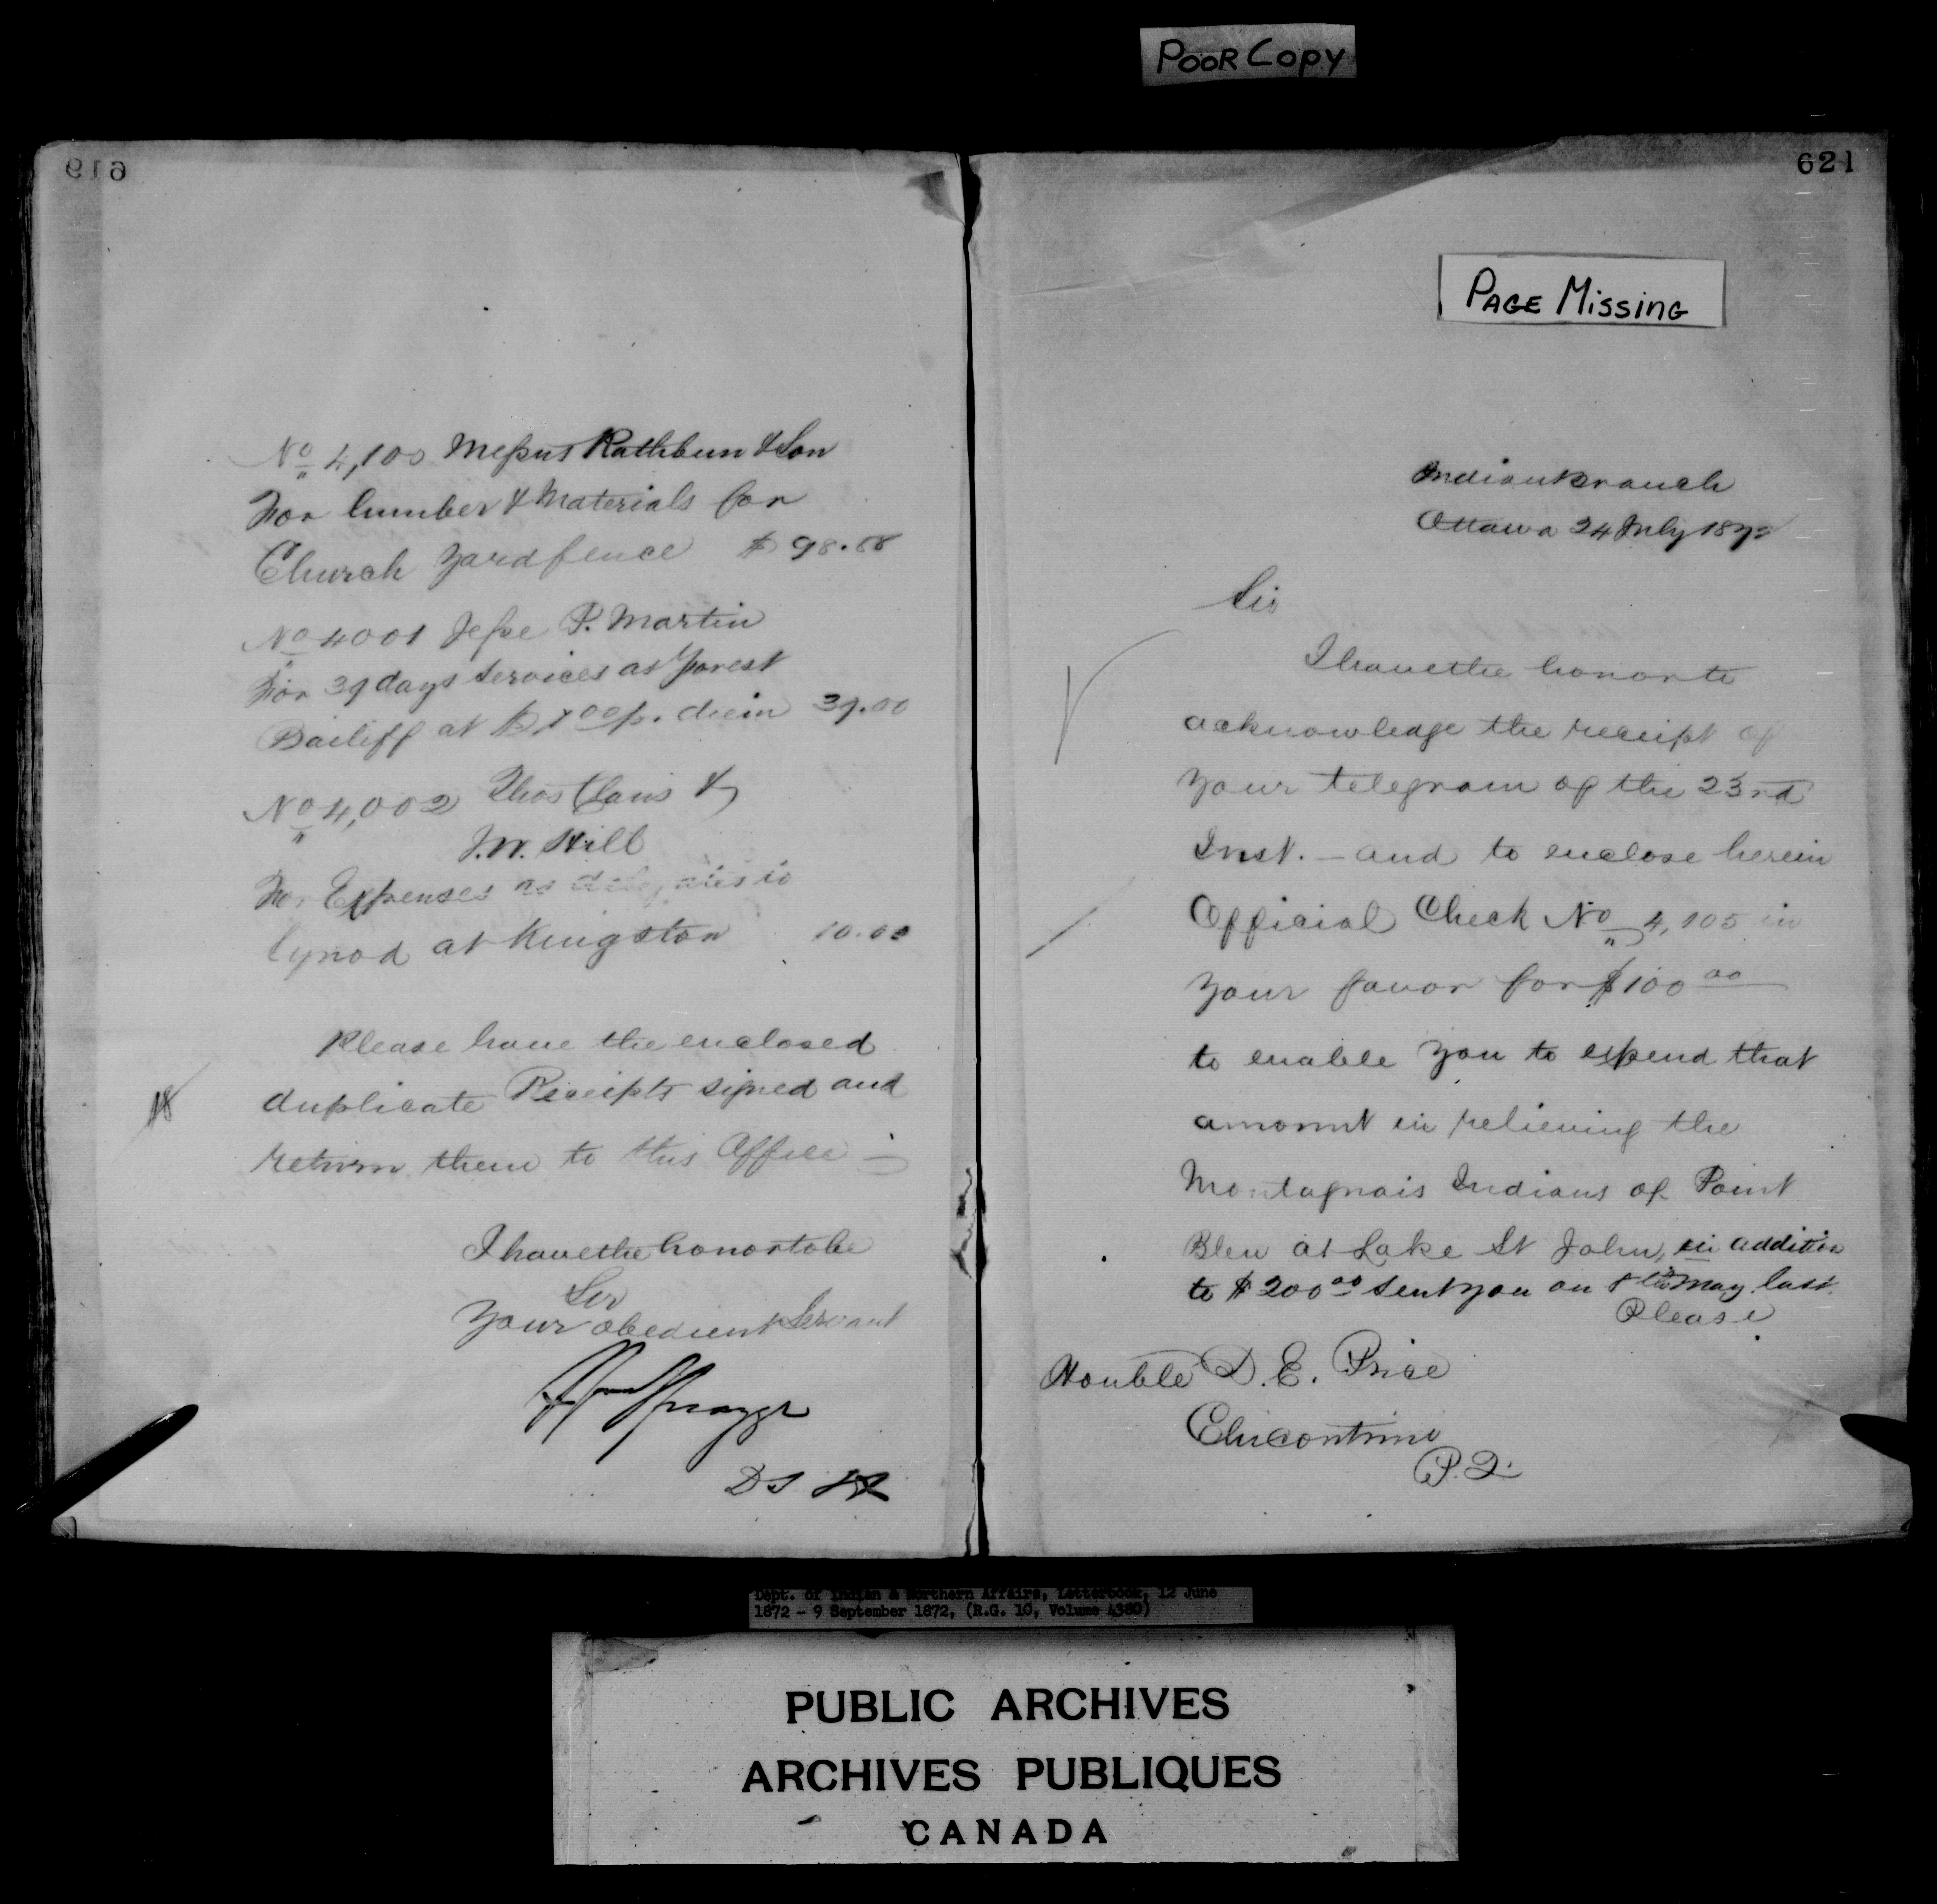 POOR COPY
619
No 4,100 Messrs Rathbun & Son
For lumber & Materials for
Church Yard fence $ 98.88
No 4001 Jesse P. Martin
For 39 days Services as Forest
Bailiff at $1 00 p. diem 39.00
No 4,002 Thos Claus &
J.W. Hill
For Expenses as delegates to
Synod at Kingston 10.00
Please have the enclosed
duplicate Receipts signed and
return them to this Office
I have the honor to be
Sir
Your obedient Servant
621
PAGE MISSING
Indian Branch
Ottawa 24 July 1872
Sir
I have the honor to
acknowledge the receipt of
your telegram of the 23rd
Inst. – and to enclose herein
Official Check No 4,105 in
your favor for $100 00
to enable you to expend that
amount in relieving the
Montagnais Indians of Point
Bleu at Lake St John, in addition
to $200 00 sent you on 8th May last.
Please
Honble D. E. Price
Chicoutimi
P.Q.
Dept. of Indian & Northern Affairs, Letterbook, 12 June
1872 - 9 September 1872, (R.G. 10, Volume 4380)
PUBLIC ARCHIVES
ARCHIVES PUBLIQUES
CANADA